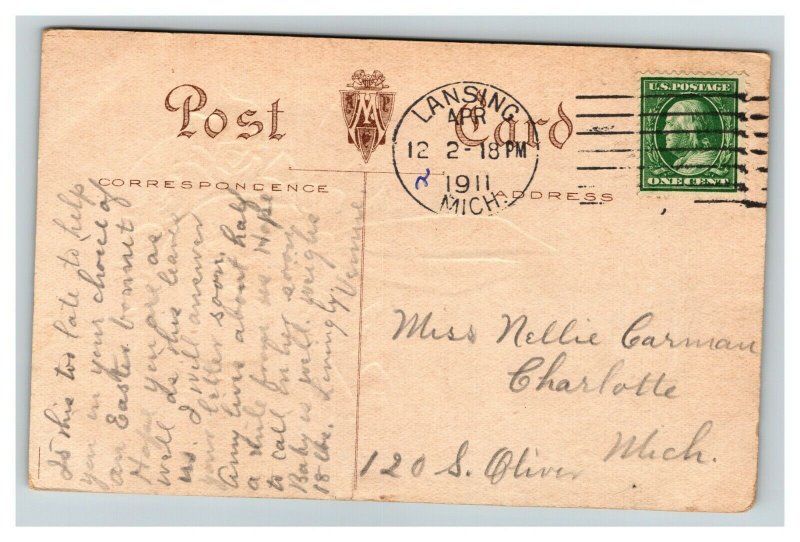 Post Card
LANSING,
APR
12 2-18 PM
2
1911
MICH.
U.S. POSTAGE
ONE CENT
CORRESPONDENCE
ADDRESS
Is this too late to help
you in your choice of
an Easter bonnet
Hope you are as
well as this leaves
us. I will answer
your letter soon.
Amy lives about half
a mile from us. Hope
to call on her soon
Baby is well weighs
18 lbs. Lovingly
Miss Nellie Carman
Charlotte
Mich.
120 S. Oliver